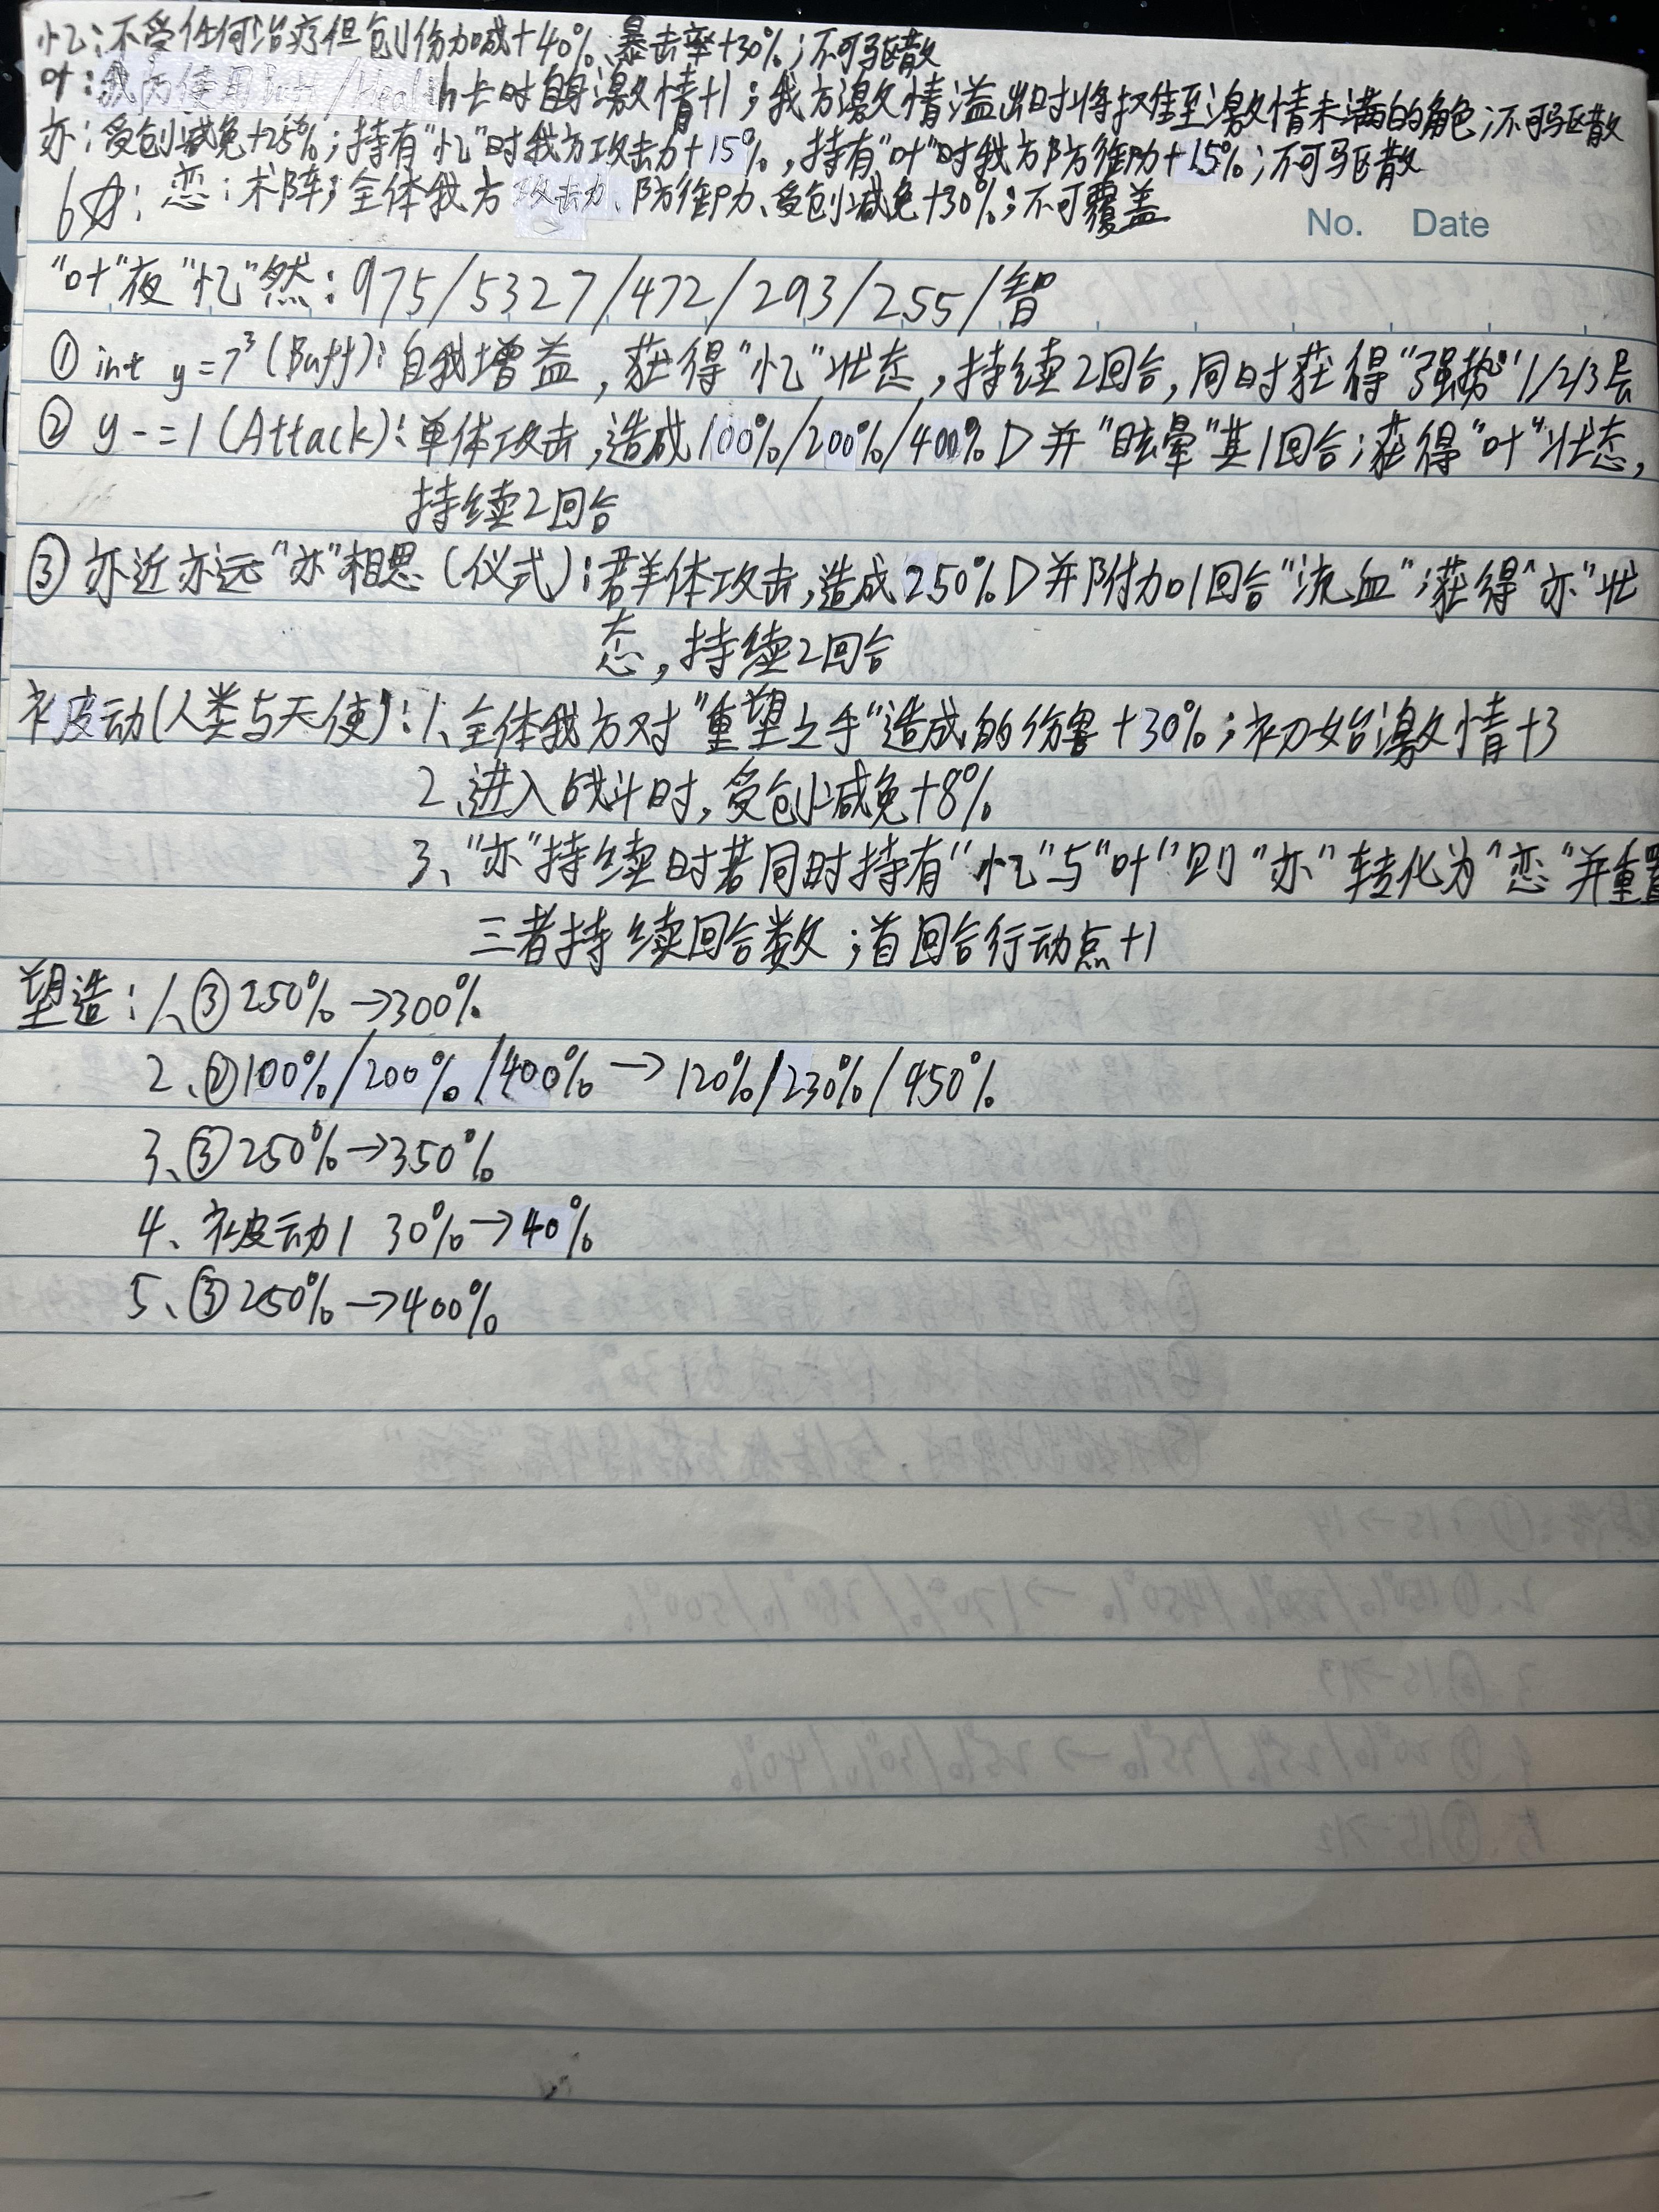 忆：不受任何治疗但创伤加成+40%、暴击率+30%；不可驱散
叶：我方使用Buff/Health卡时自身激情+1；我方激情溢出时将推至激情未满的角色；不可驱散
亦：受创减免+25%；持有“忆”时我方攻击力+15%，持有“叶”时我方防御力+15%；不可驱散
6☆：恋：术阵；全体我方攻击力、防御力、受创减免+30%；不可覆盖
No. Date
“叶”夜“忆”然：975/5327/472/293/255/智
① int y=7³(Buff)：自我增益，获得“忆”状态，持续2回合，同时获得“强势”1/2/3层
② y-=1(Attack)：单体攻击，造成100%/200%/400%D并“眩晕”其1回合；获得“叶”状态，
持续2回合
③ 亦近亦远“亦”相思(仪式)：群体攻击，造成250%D并附加1回合“流血”；获得“亦”状
态，持续2回合
被动(人类与天使)：1、全体我方对“重塑之手”造成的伤害+30%；初始激情+3
2、进入战斗时，受创减免+8%
3、“亦”持续时若同时持有“忆”与“叶”则“亦”转化为“恋”并重置
三者持续回合数；首回合行动点+1
塑造：1、③250%→300%
2、②100%/200%/400%→120%/230%/450%
3、③250%→350%
4、被动1 30%→40%
5、③250%→400%